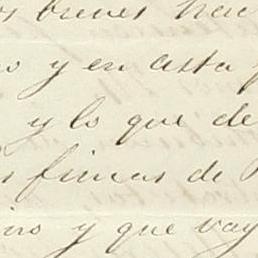 breves
y en esta
y lo que de
firmas de
y que vay